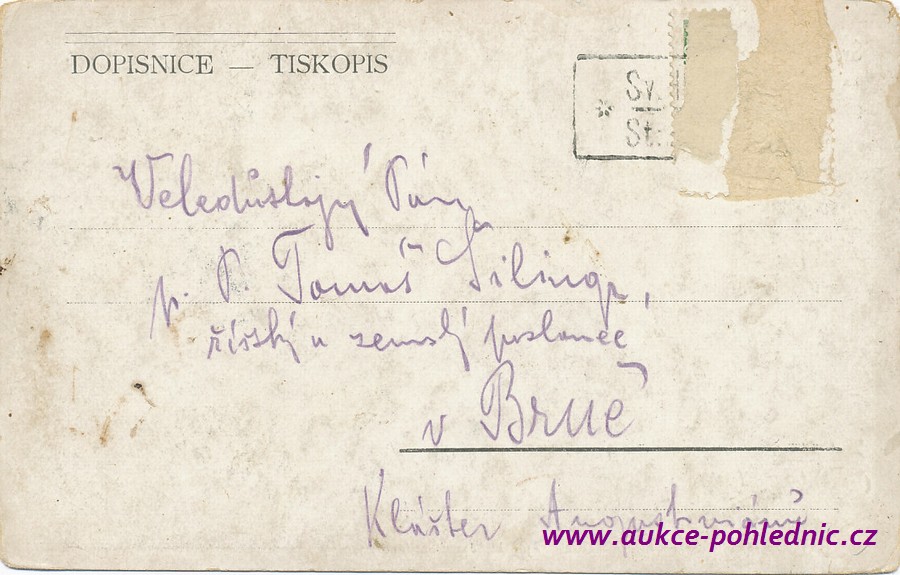 DOPISNICE — TISKOPIS
* Sv.
St.
Veledůstojný Pán
p. P. Tomáš Šilingr,
říšský a zemský poslanec
v Brně
Klášter Augustiniánů
www.aukce-pohlednic.cz